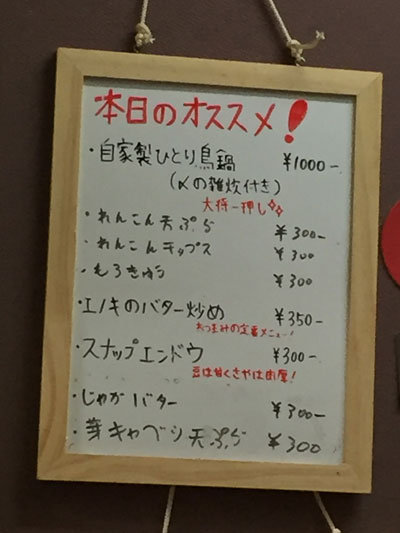 本日のオススメ!
・自家製ひとり鳥鍋 ¥1000-
(〆の雑炊付き)
大将一押し
・れんこん天ぷら ¥300-
・れんこんチップス ¥300
・もろきゅう ¥300
・エノキのバター炒め ¥350-
おつまみの定番メニュー!
・スナップエンドウ ¥300-
豆は甘くさやは肉厚!
・じゃがバター ¥300-
・芽キャベツ天ぷら ¥300